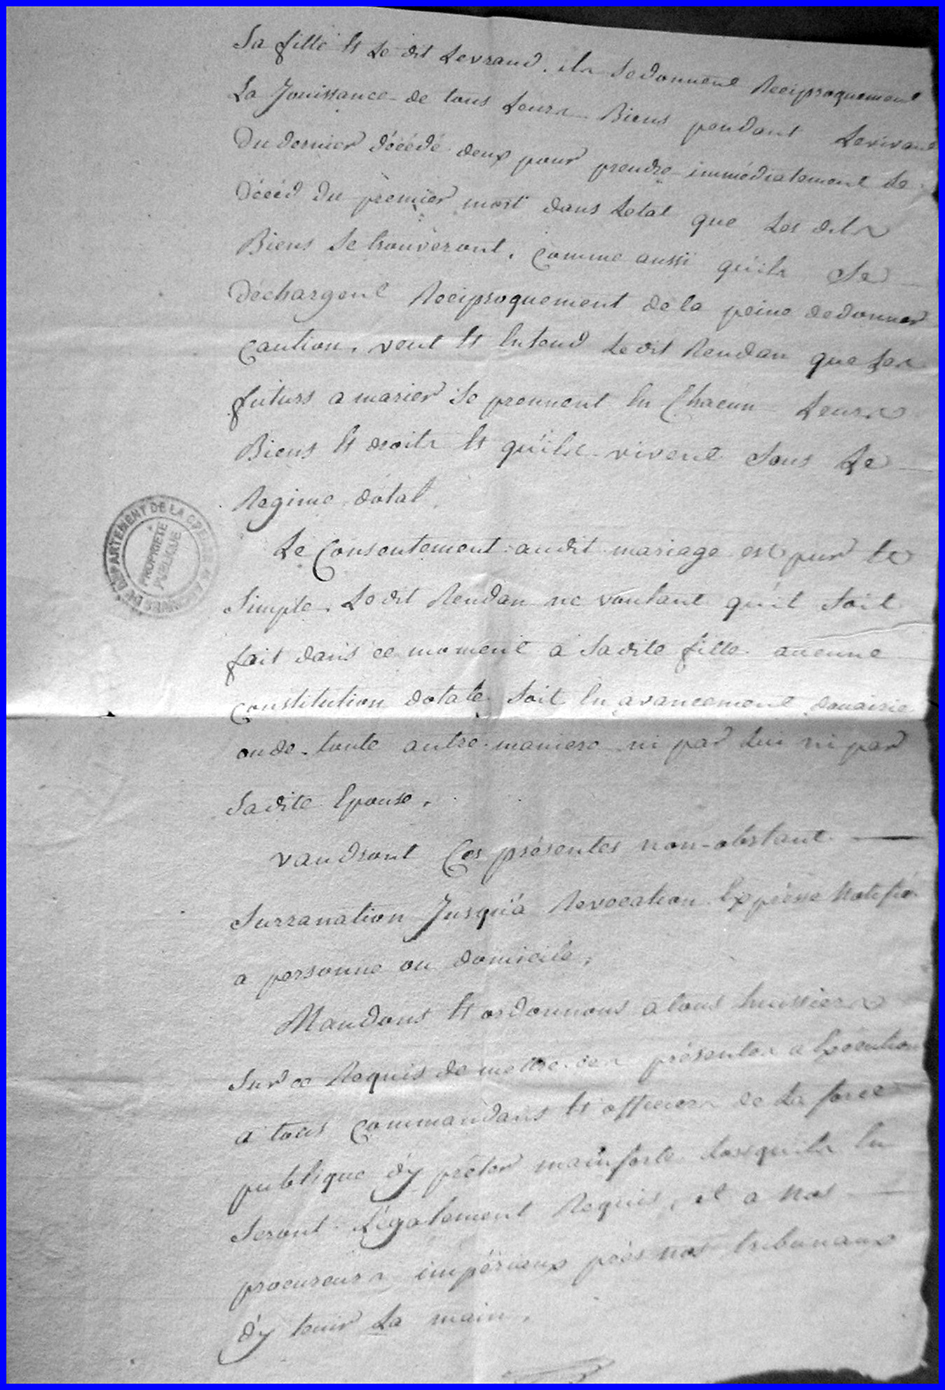 Sa fille et Le dit Levraud. ils Se donnent Reciproquement
La Jouissance de tous Leurs Biens pendant Le vivant
Du dernier décédé deux pour prendre immédiatement Le
Décéd du premier mort dans Letat que Les dits
Biens Se trouveront, Comme aussi qu'ils Se
Dechargent Reciproquement de la peine de donner
Caution, veut Et Entend Le dit Rendan que Les
futurs a marier Se prennent En Chacun Leurs
Biens Et droits Et qu'ils vivent Sous Le
Regime dotal.
Le Consentement audit mariage est pur Et
Simple. Le dit Rendan ne voulant qu'il Soit
fait dans ce moment a Sadite fille aucune
Constitution dotale Soit En avancement
ou de toute autre maniere ni par Lui ni par
Sadite Epouse.
vaudront Ces présentes non-obstant
Surranation Jusqu'a Revocation Expresse Notifié
a personne ou domicile,
Mandons Et ordonnons a tous huissiers
Sur ce Requis de mettre ces présentes a Execution
a tous Commandans Et officiers de La force
publique d'y prêter mainforte Lorsquils En
Seront Légalement Requis, et a Nos
procureurs impériaux près nos tribunaux
d'y tenir La main.
DEPARTEMENT DE LA CREUSE
ARCHIVES DU
PROPRIETE
PUBLIQUE